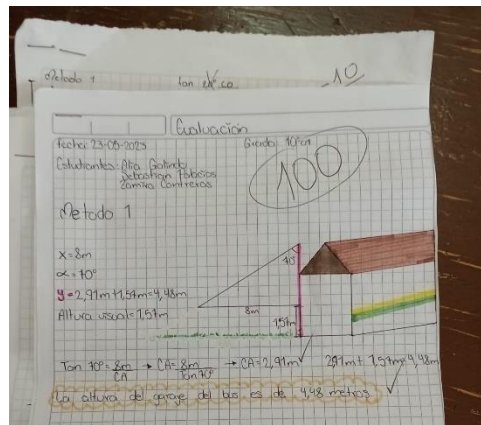 Metodo 1 tan co 10
Evaluación
fecha: 23-05-2023 Grado: 10°01
Estudiantes: Alia Galindo
Sebastian Palacios
Zamira Contreras
100
Metodo 1
X=8m
α=70°
y=2,91m+1,57m=4,48m
Altura visual=1,57m
70°
8m
1,57m
Tan 70°=8m/CA → CA=8m/Tan 70° → CA=2,91m 2,91m+1,57m=4,48m
La altura del garaje del bus es de 4,48 metros